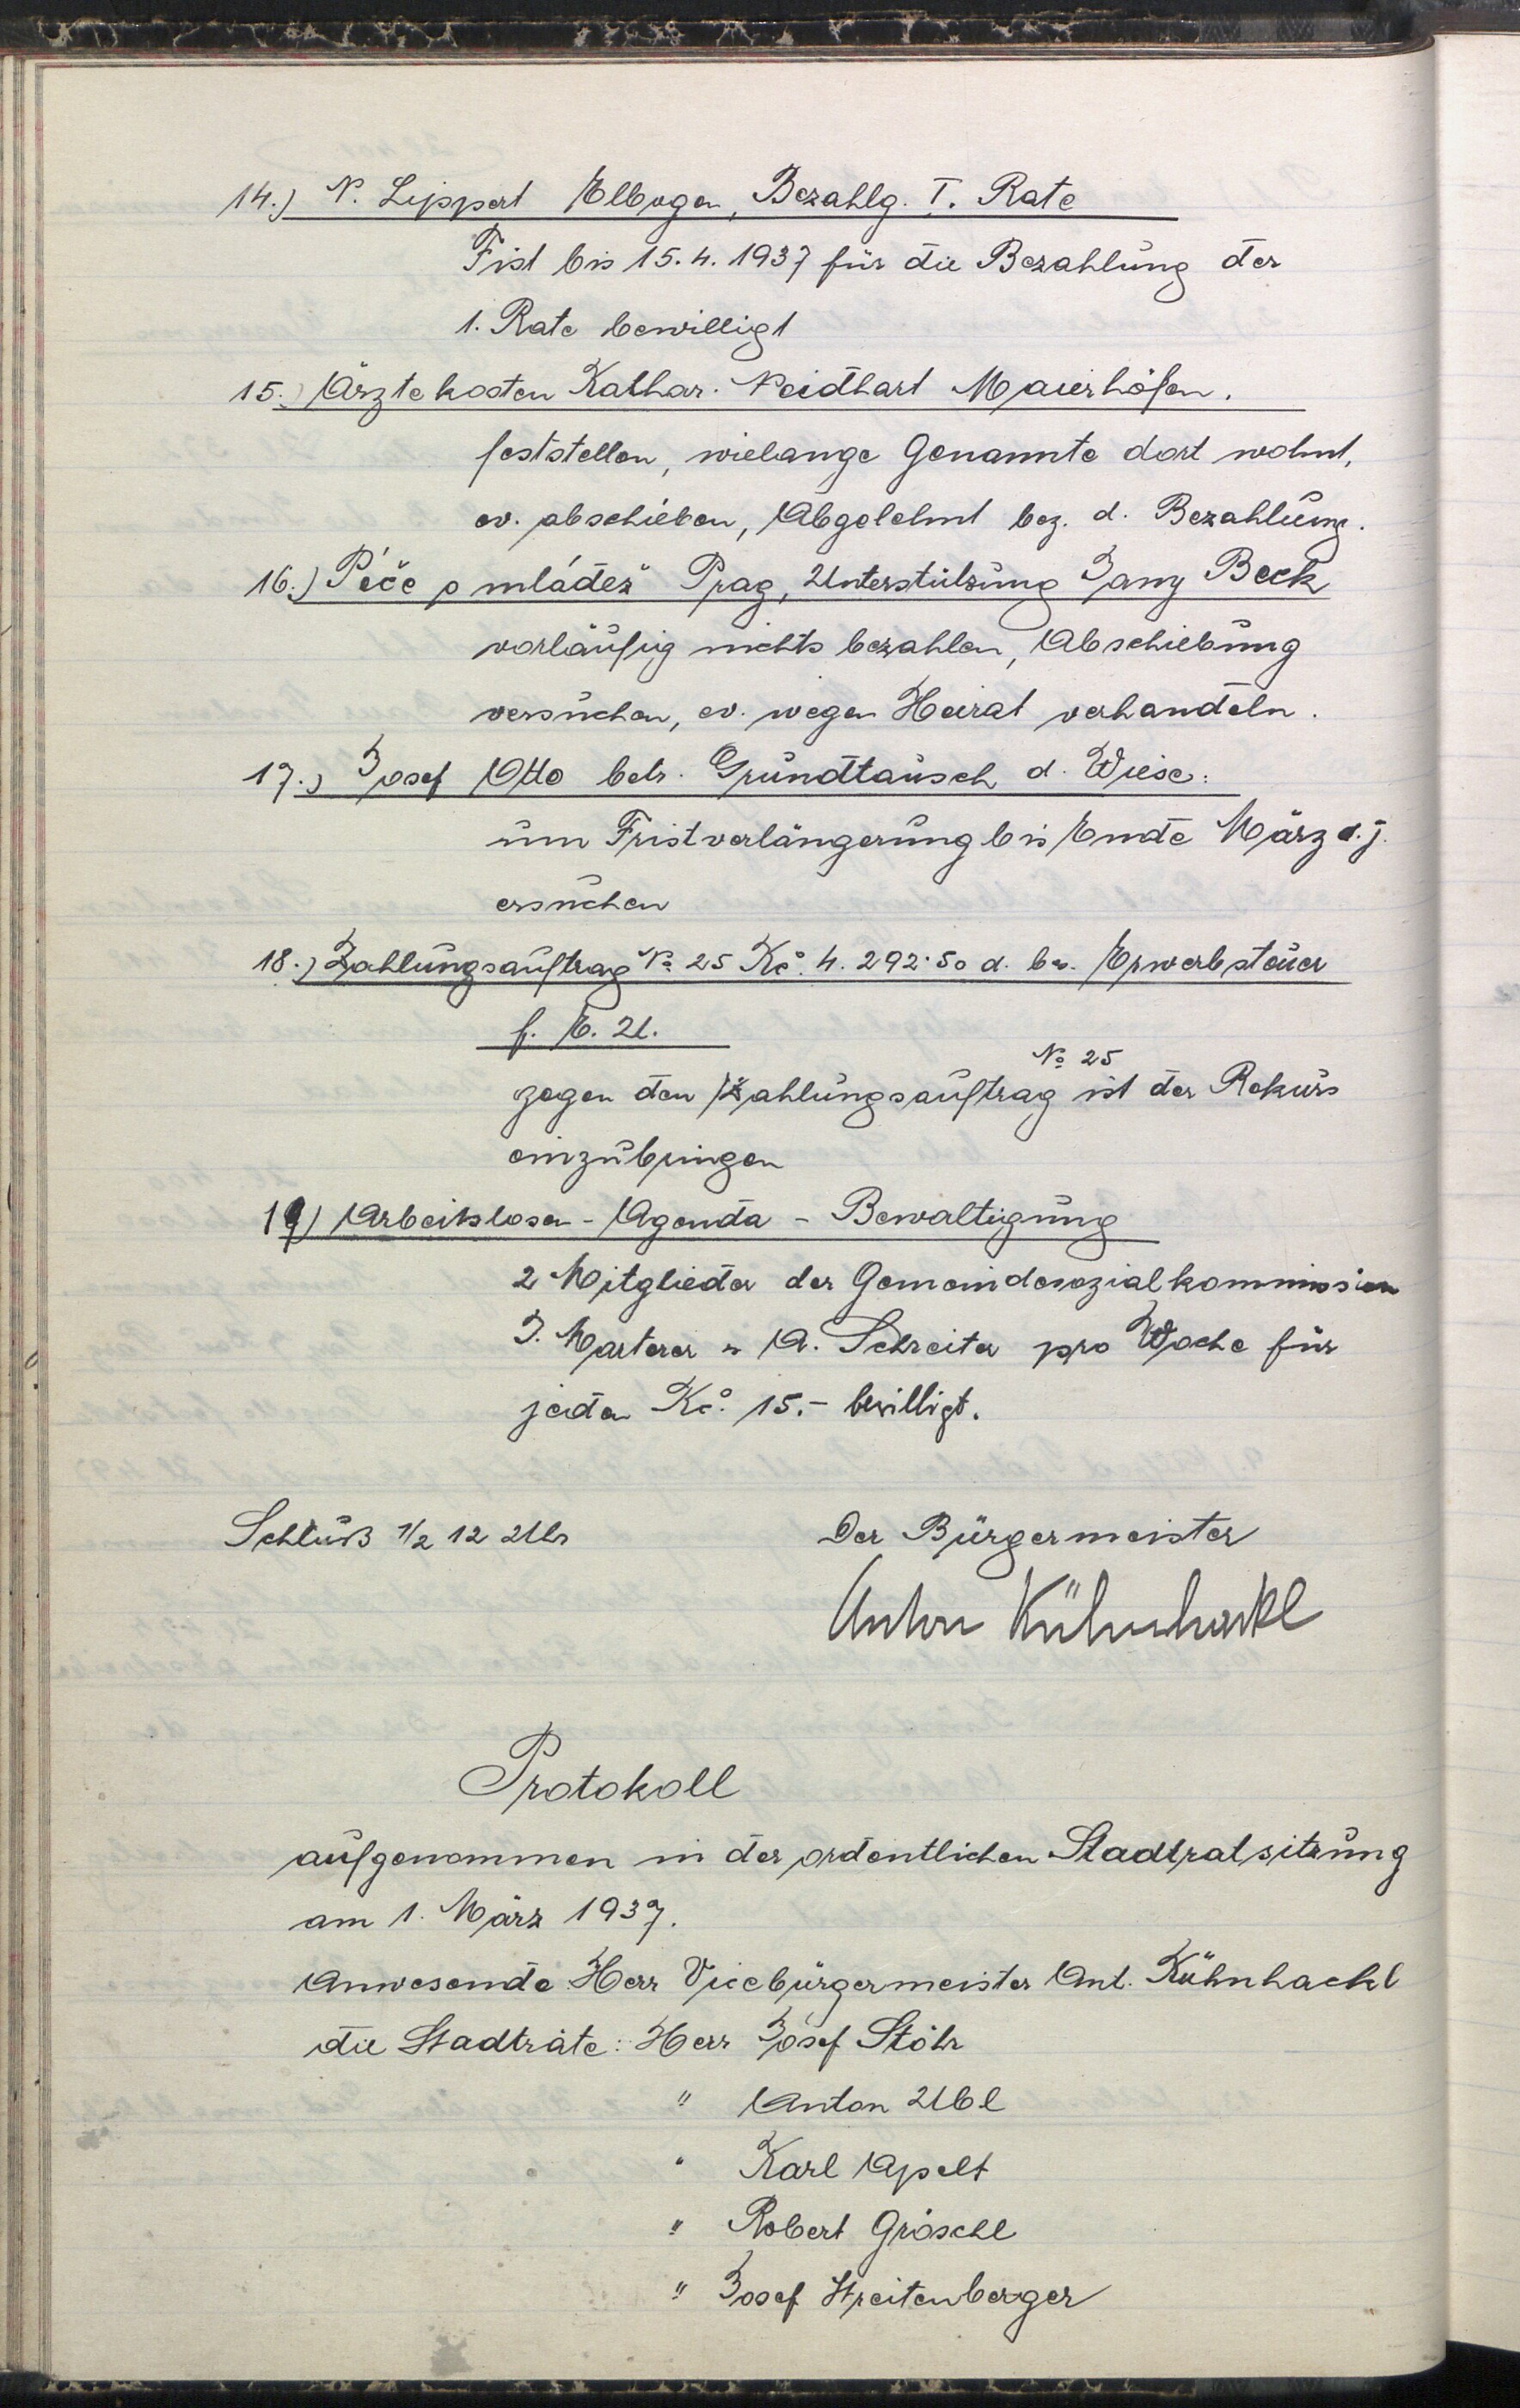 14.) N. Lippert Elbogen, Bezahlg. I. Rate
Frist bis 15.4.1937 für die Bezahlung der
1. Rate bewilligt
15.) Ärztekosten Kathar. Neidhart Maierhöfen.
feststellen, wielange Genannte dort wohnt,
ev. abschieben, Abgelehnt bez. d. Bezahlung.
16.) Péče o mládež Prag, Unterstützung Jany Beck
vorläufig nichts bezahlen, Abschiebung
versuchen, ev. wegen Heirat verhandeln.
17.) Josef Otto betr. Grundtausch d. Wiese:
um Fristverlängerung bis Ende März d. j.
ersuchen
18.) Zahlungsauftrag No 25 Kč. 4.292·50 d. bes. Erwerbsteuer
f. E. U.
No 25
gegen den Zahlungsauftrag ist der Rekurs
einzubringen
19) Arbeitslosen - Agenda - Bewältigung
2 Mitglieder der Gemeindesozialkommission
J. Marterer u A. Schreiter pro Woche für
jeden Kč. 15.- bewilligt.
Schluß 1/2 12 Uhr
Der Bürgermeister
Anton Kühnhackl
Protokoll
aufgenommen in der ordentlichen Stadtratsitzung
am 1. März 1937.
Anwesende: Herr Vicebürgermeister Ant. Kühnhackl
die Stadträte: Herr Josef Stöhr
" Anton Ubl
" Karl Apelt
" Robert Gröschl
" Josef Streitenberger